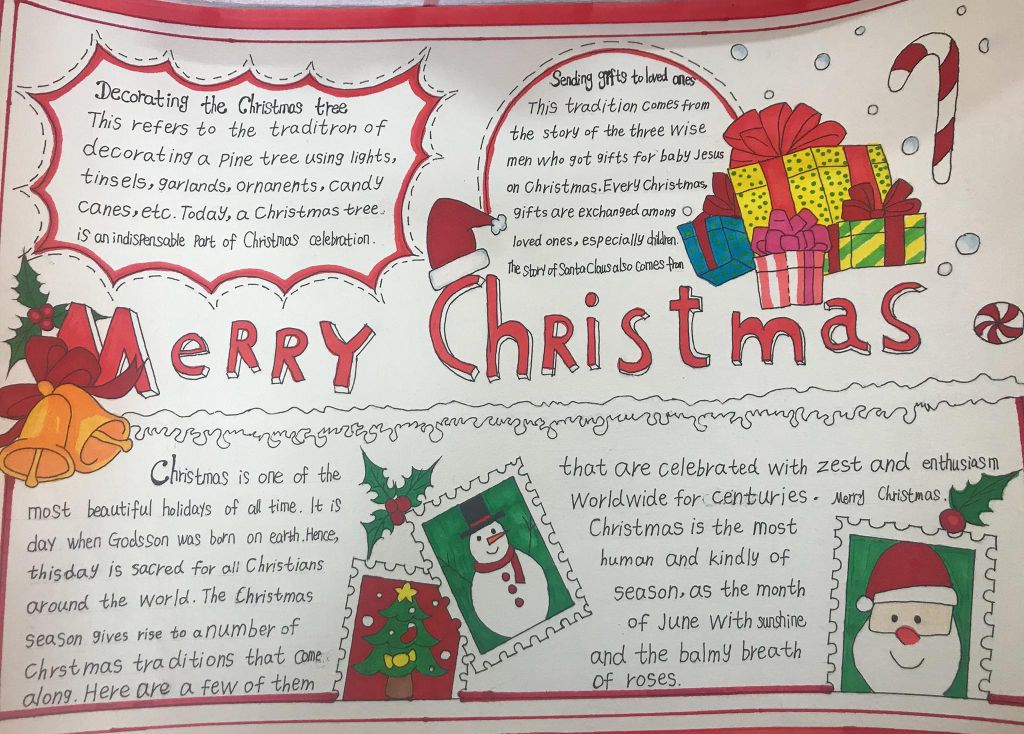 Decorating the Christmas tree
This refers to the traditron of
decorating a pine tree using lights,
tinsels, garlands, ornanents, candy
canes, etc. Today, a Christmas tree.
is an indispensable part of Christmas celebration.
Sending gifts to loved ones
This tradition comes from
the story of the three wise
men who got gifts for baby Jesus
on Christmas. Every Christmas,
gifts are exchanged among
loved ones, especially children.
The story of Santa Claus also comes from
Merry Christmas
Christmas is one of the
most beautiful holidays of all time. It is
day when Godsson was born on earth. Hence,
thisday is sacred for all Christians
around the world. The Christmas
season gives rise to a number of
Chrstmas traditions that come
along. Here are a few of them
that are celebrated with zest and enthusiasm
Worldwide for centuries. Merry Christmas.
Christmas is the most
human and kindly of
season, as the month
of June with sunshine
and the balmy breath
of roses.